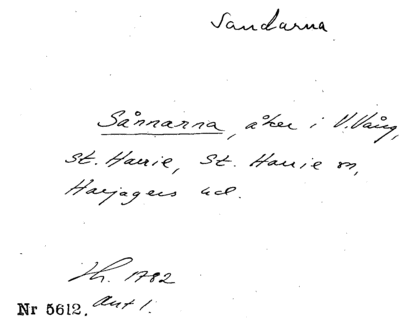 Sandarna
Sånnarna, åker i V. Vång,
St. Harrie, St. Harrie sn,
Harjagers hd.
Th. 1782
Akt 1.
Nr 5612.